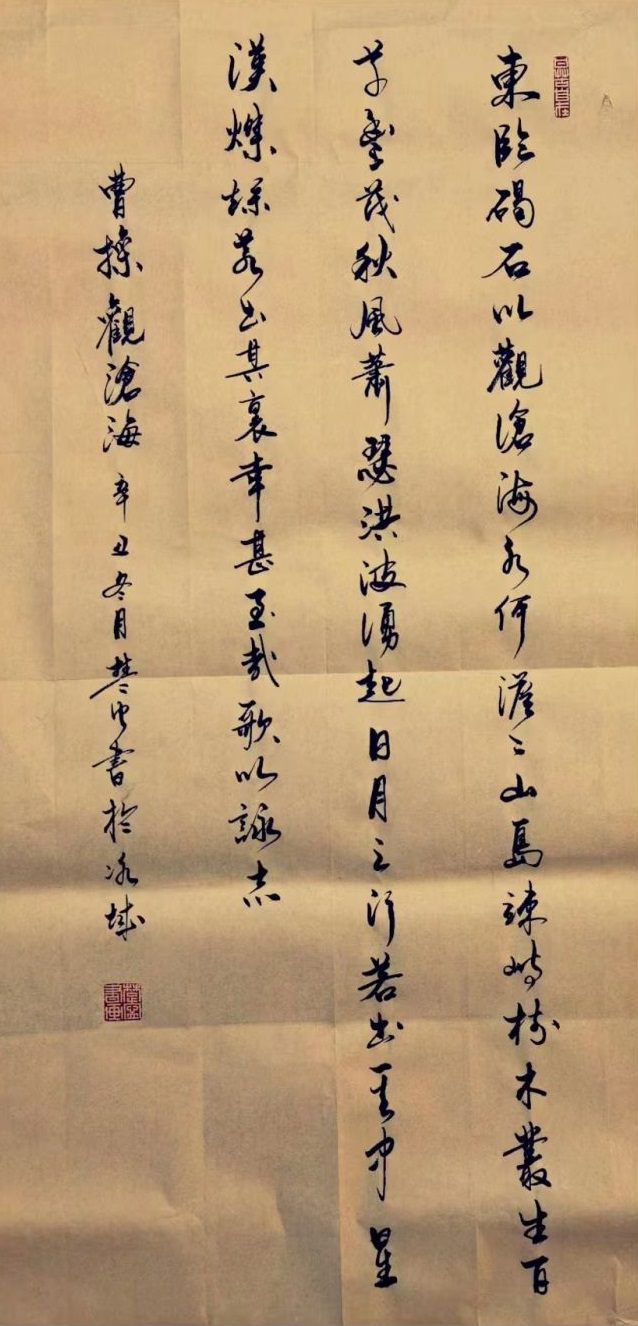 東臨碣石以觀滄海水何澹〻山島竦峙樹木叢生百
草豐茂秋風蕭瑟洪波湧起日月之行若出其中星
漢燦爛若出其裏幸甚至哉歌以詠志
曹操觀滄海 辛丑冬月楚中書於冰城